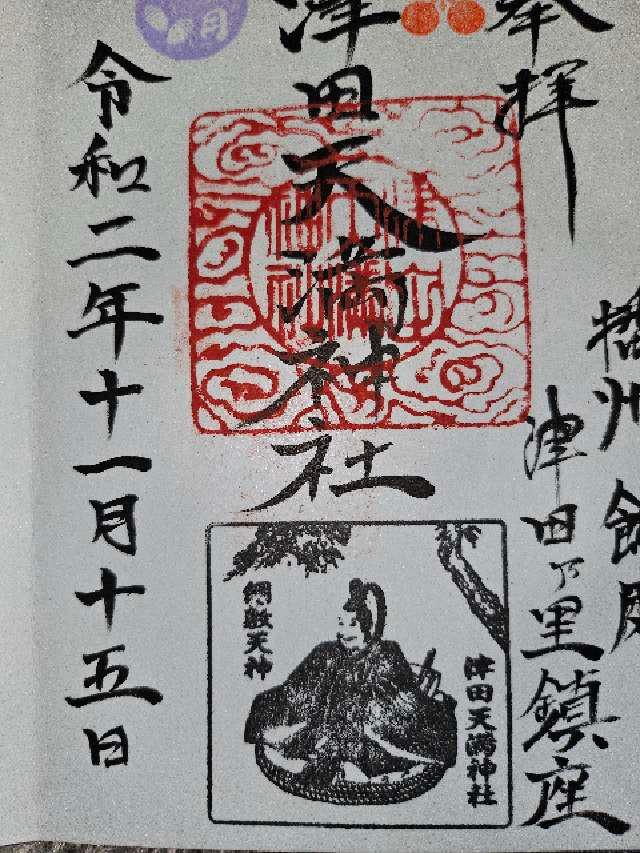 奉拝
播州 飾磨
津田乃里鎮座
津田天満神社
月
令和二年十一月十五日
綱敷天神
津田天満神社